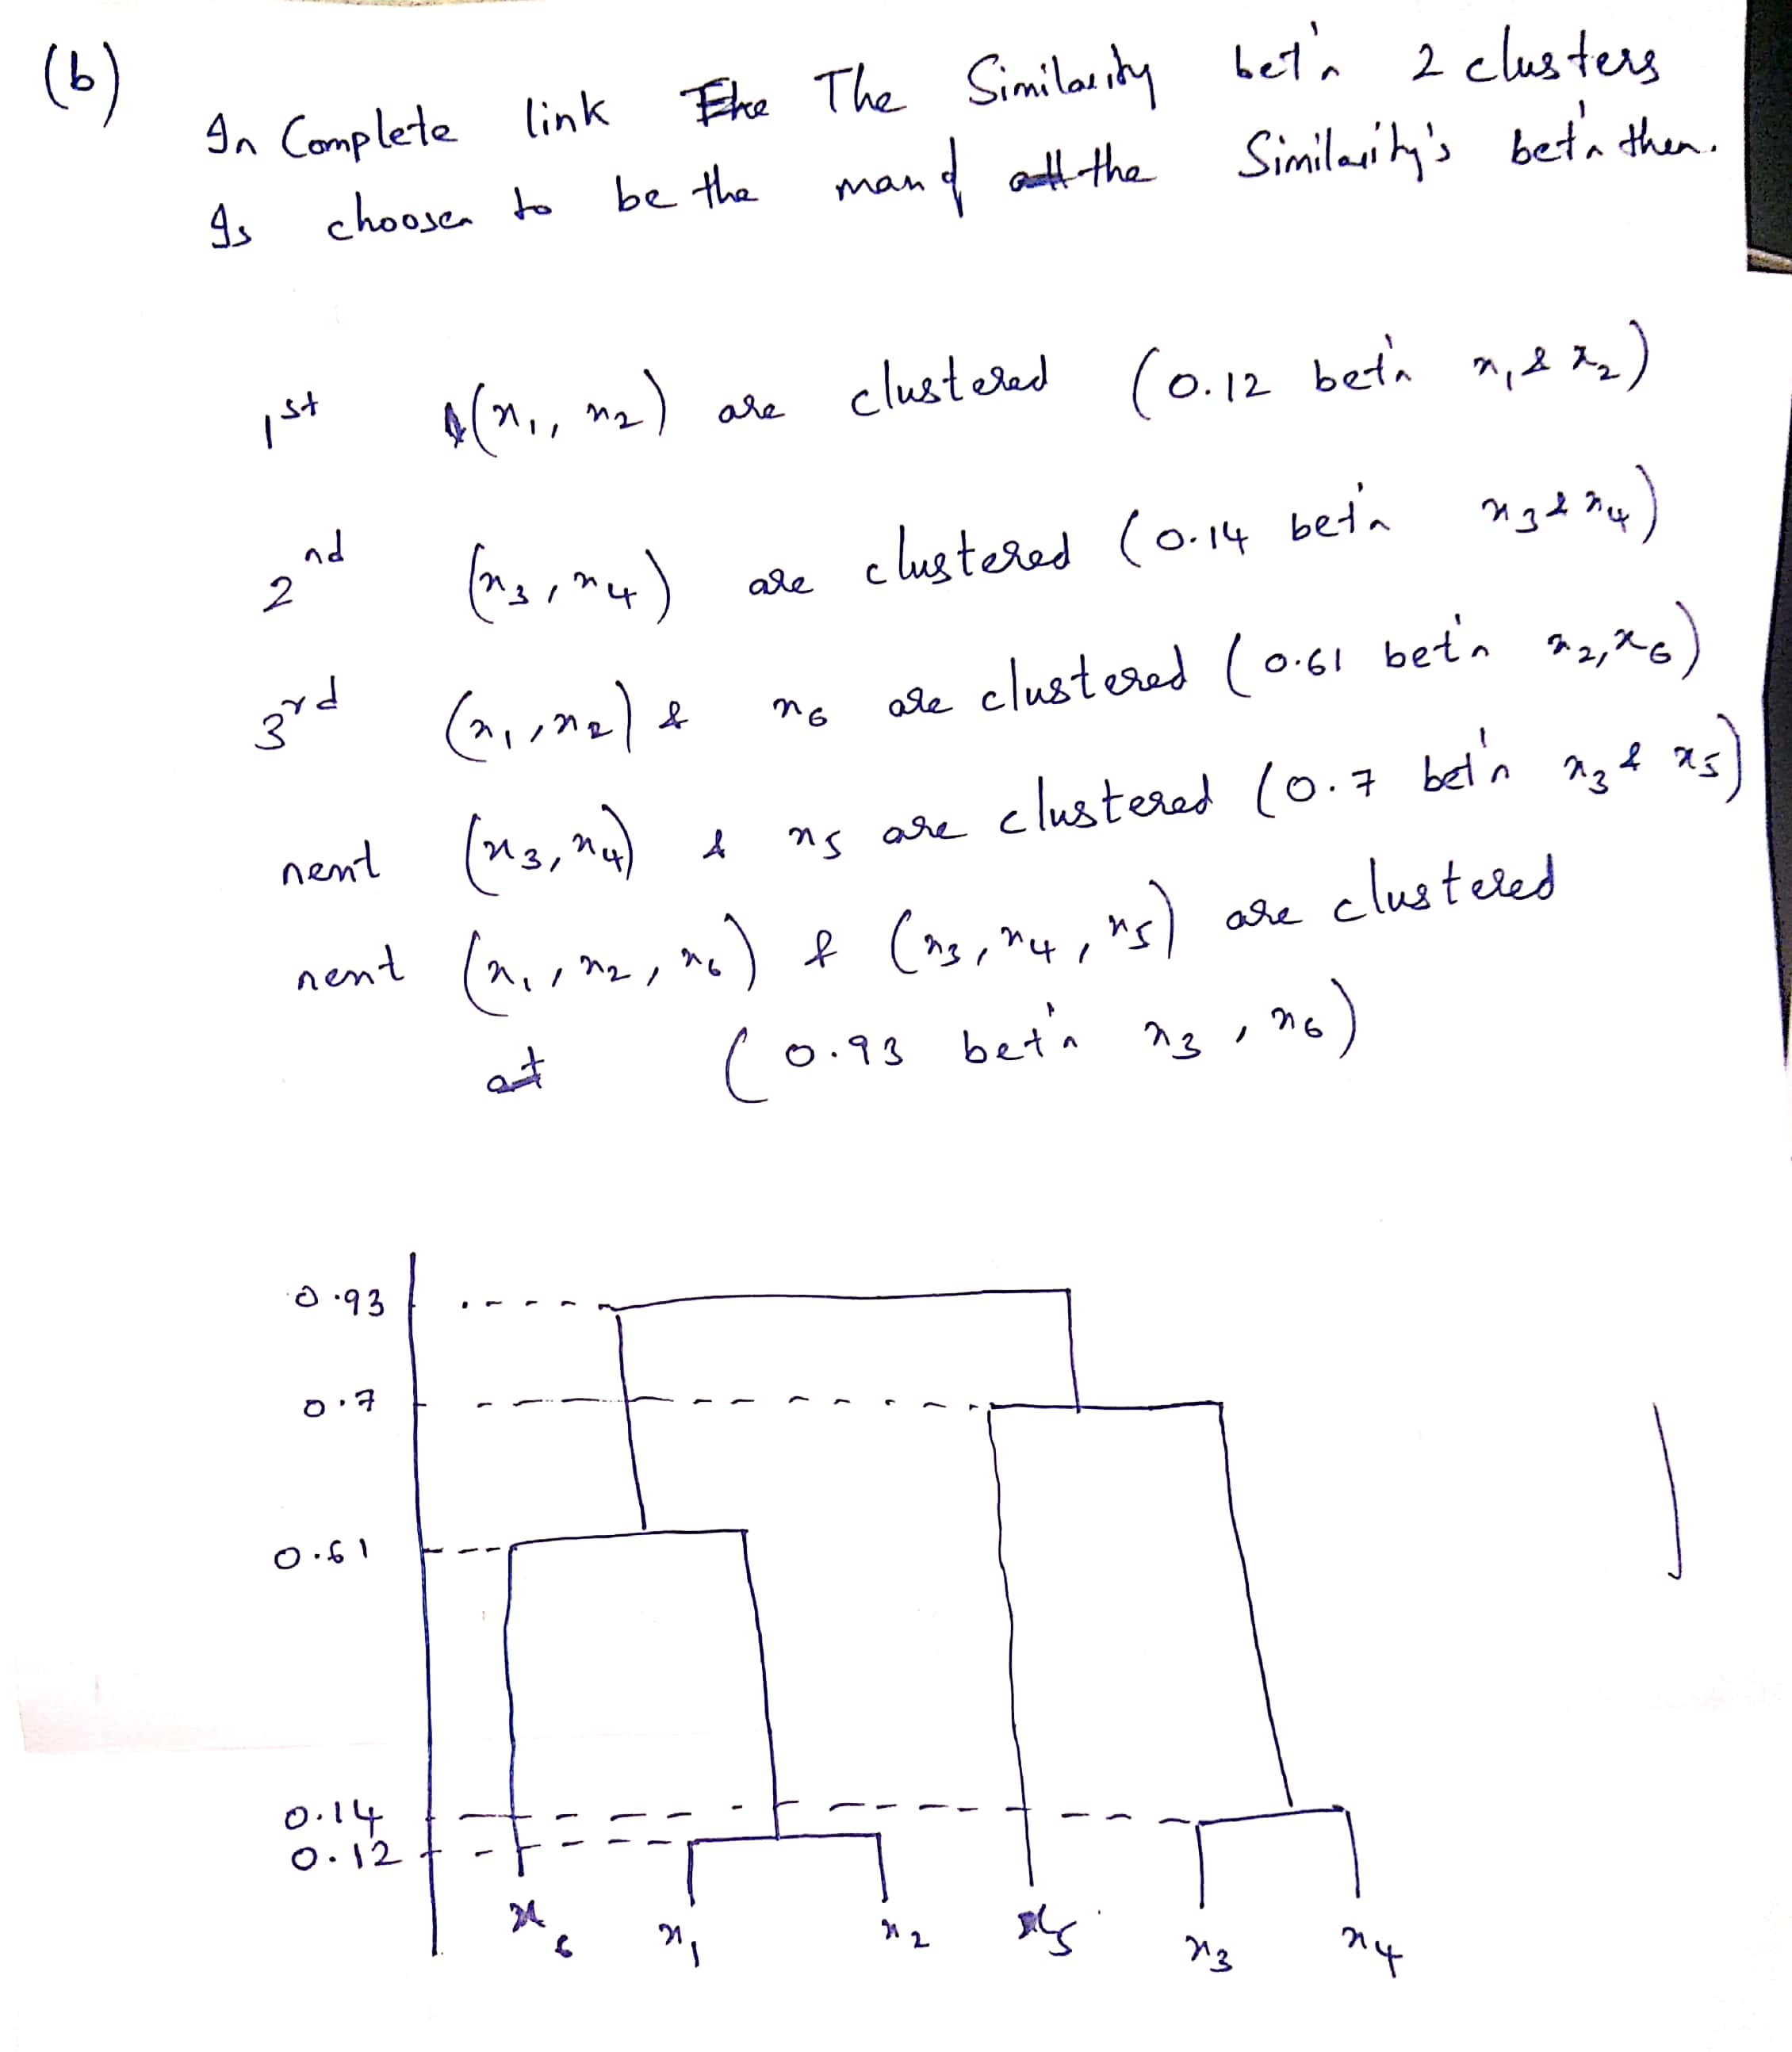 (b)
In Complete link The The Similarity bet'n 2 clusters
Is choosen to be the max of all the Similarity's bet'n then.
1st (x1, x2) are clustered (0.12 bet'n x1 & x2)
2nd (x3, x4) are clustered (0.14 bet'n x3 & x4)
3rd (x1, x2) & x6 are clustered (0.61 bet'n x2, x6)
next (x3, x4) & x5 are clustered (0.7 bet'n x3 & x5)
next (x1, x2, x6) & (x3, x4, x5) are clustered
at (0.93 bet'n x3, x6)
0.93
0.7
0.61
0.14
0.12
x6 x1 x2 x5 x3 x4